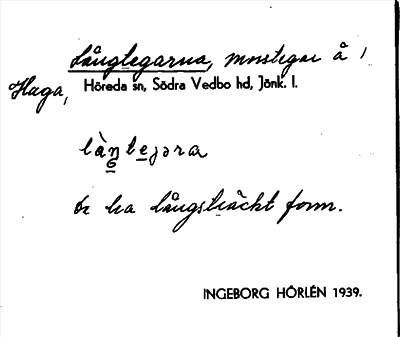 Långtegarna, mostegar å
Haga, Höreda sn, Södra Vedbo hd, Jönk. l.
De ha långsträckt form.
INGEBORG HÖRLÉN 1939.